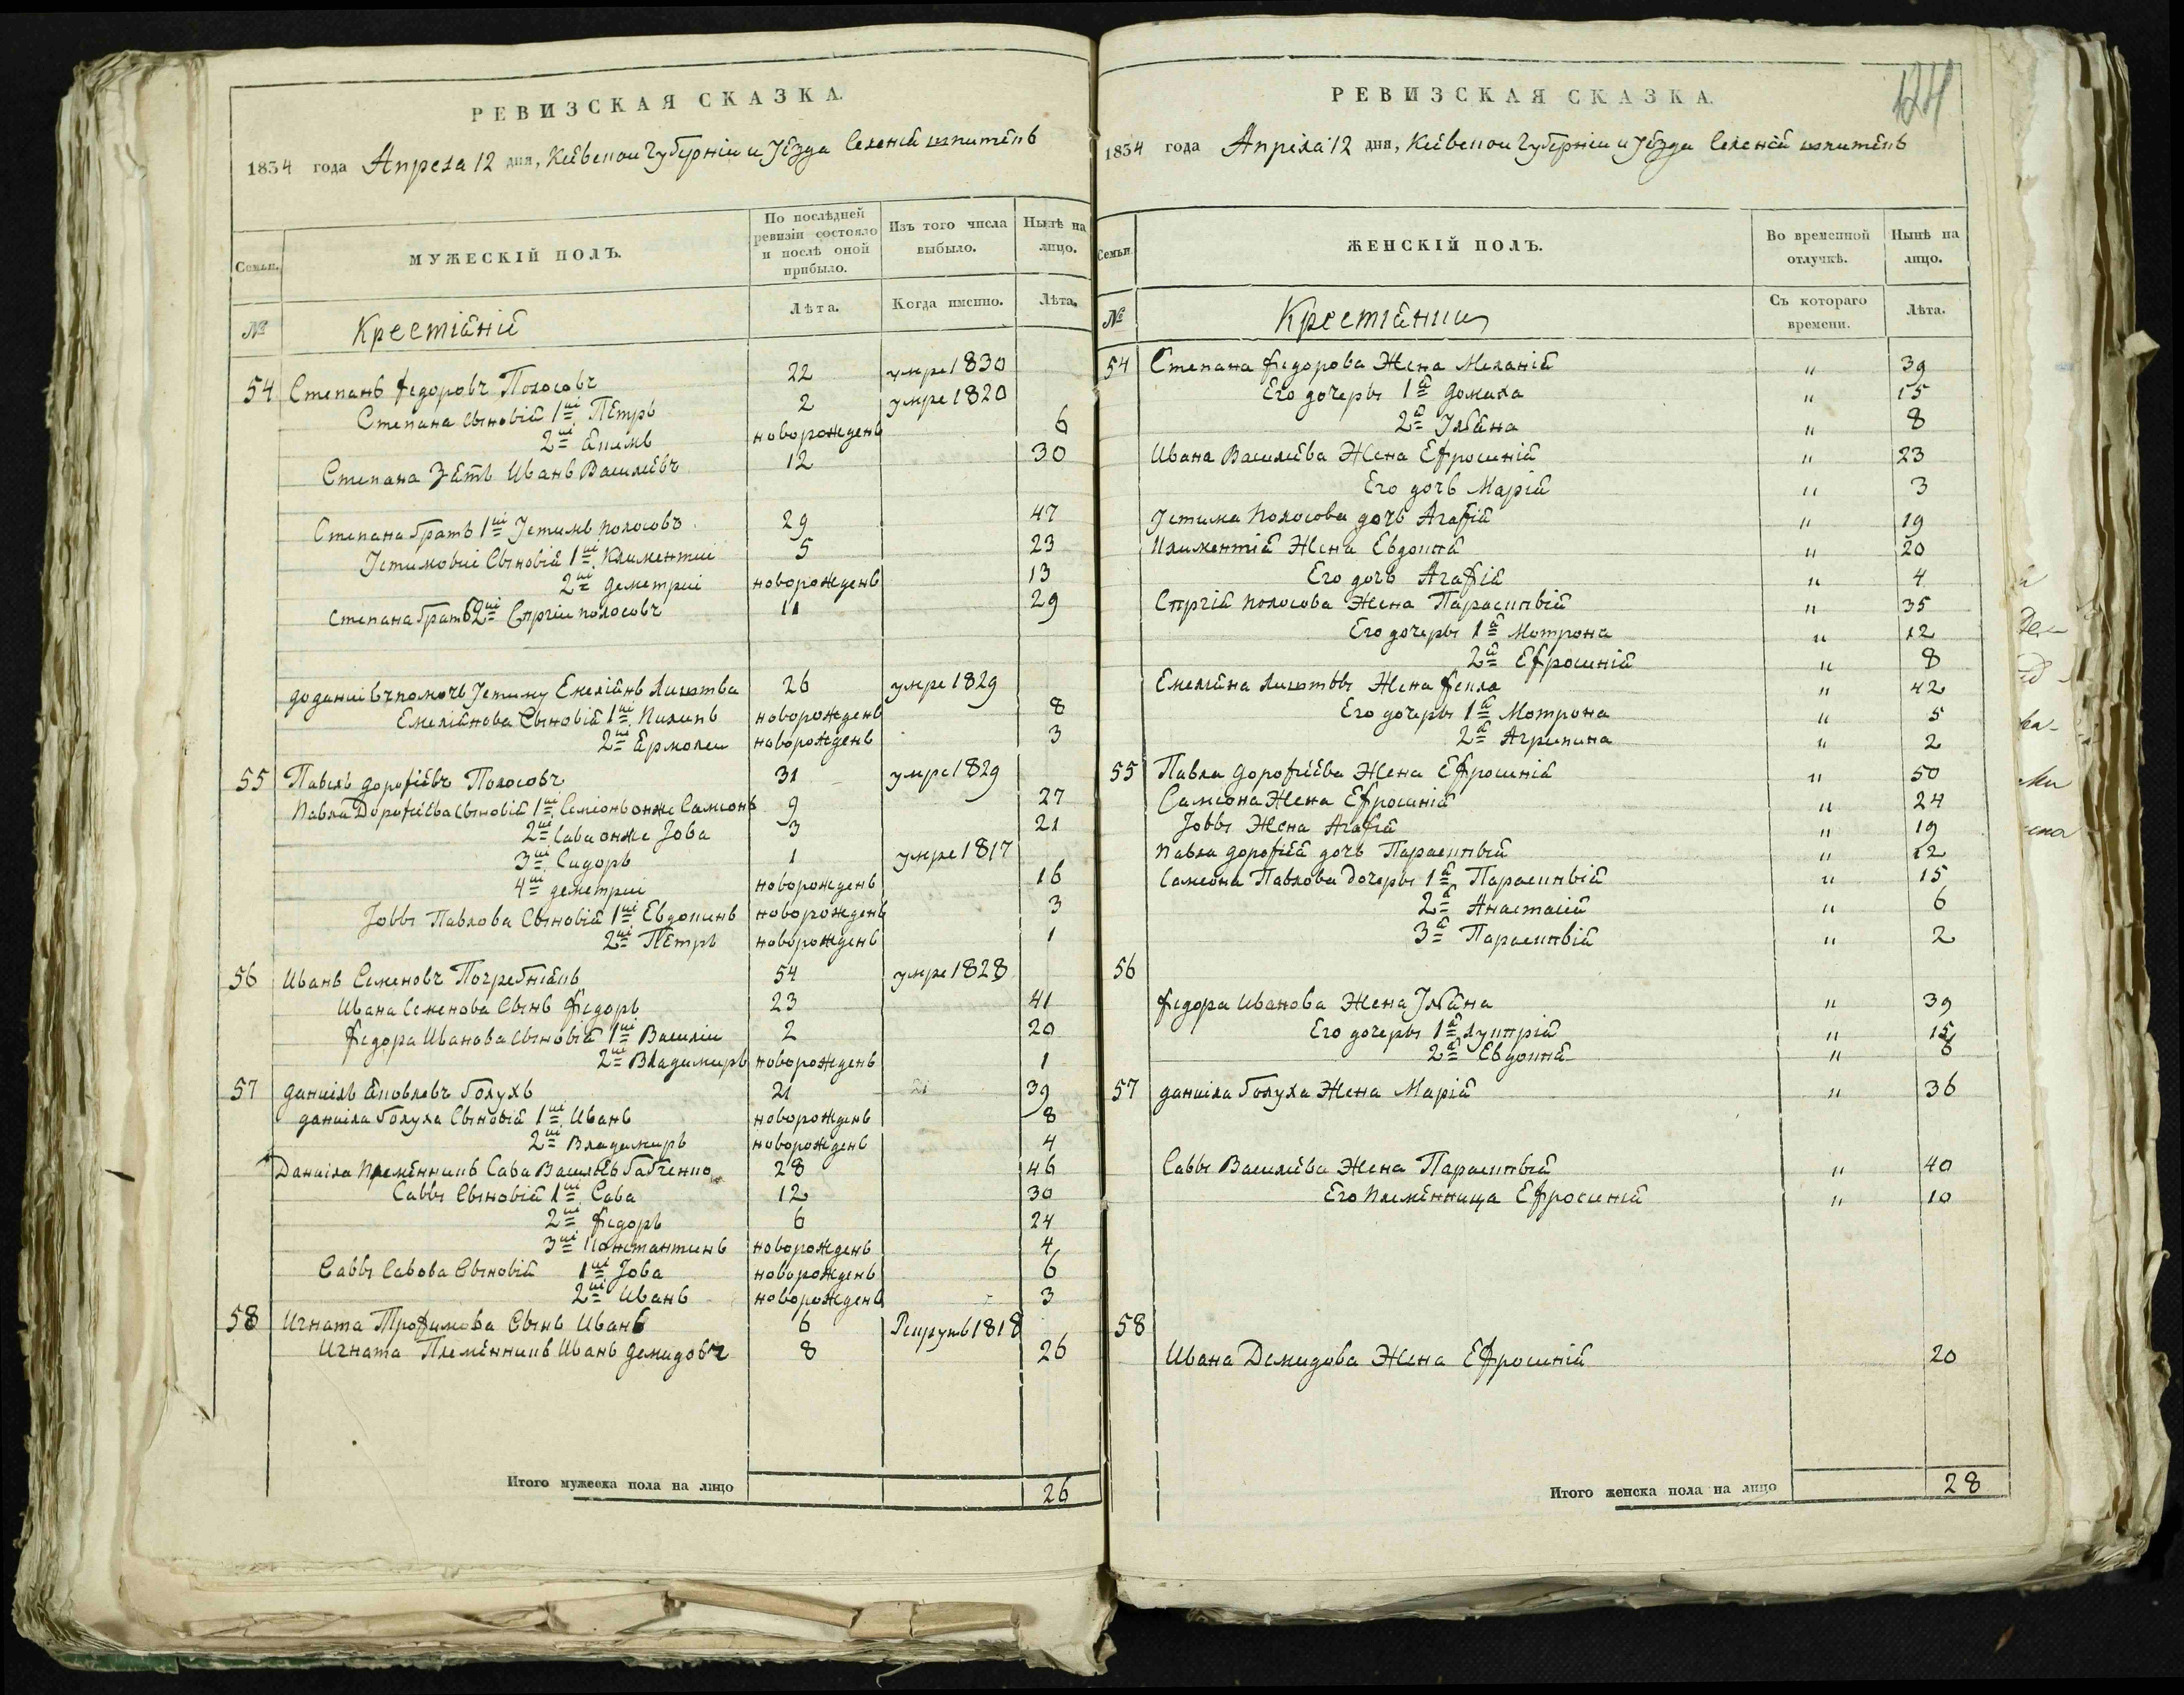 РЕВИЗСКАЯ СКАЗКА.
1834 года Апреля 12 дня, Кіевской Губерніи и Уѣзда Селенія
Семьи.
МУЖЕСКІЙ ПОЛЪ.
По послѣдней ревизіи состояло и послѣ оной прибыло.
Изъ того числа выбыло.
Нынѣ на лицо.
№
Крестіяніе
Лѣта.
Когда именно.
Лѣта.
54 Степанъ Федоровъ Полосовъ 22 умре 1830
Степана Сыновія 1й Петръ 2 умре 1820
2й новорожденъ 6
Степана Зять Иванъ Василіевъ 12 30
Степана братъ 1й Устимъ Полосовъ 29 47
Устимовіе Сыновія 1й Климентій 5 23
2й Деметрій новорожденъ 13
Степана братъ 2й Сергій Полосовъ 11 29
Устиму Емеліянъ 26 умре 1829
Емеліянова Сыновія 1й новорожденъ 8
2й Ермолей новорожденъ 3
55 Павелъ Дорофіевъ Полосовъ 31 умре 1829
Павла Дорофіева Сыновія 1й Семіонъ онже Самсонъ 9 27
2й Сава онже Іова 3 21
3й Сидоръ 1 умре 1817
4й Деметрій новорожденъ 16
Іовы Павлова Сыновія 1й Евдокимъ новорожденъ 3
2й Петръ новорожденъ 1
56 Иванъ Семеновъ Погребнякъ 54 умре 1828
Ивана Семенова Сынъ Федоръ 23 41
Федора Иванова Сыновія 1й Василій 2 20
2й Владимиръ новорожденъ 1
57 Даніилъ Яковлевъ Голухъ 21 39
Даніила Голуха Сыновія 1й Иванъ новорожденъ 8
2й Владимиръ новорожденъ 4
Даніила Племѣнникъ Сава Василіевъ Бабченко 28 46
Саввы Сыновія 1й Сава 12 30
2й Федоръ 6 24
3й Константинъ новорожденъ 4
Саввы Савова Сыновія 1й Іова новорожденъ 6
2й Иванъ новорожденъ 3
58 Игната Трофимова Сынъ Иванъ 6 Рекрутъ 1818
Игната Племѣнникъ Иванъ Демидовъ 8 26
Итого мужеска пола на лицо 26
РЕВИЗСКАЯ СКАЗКА.
1834 года Апріля 12 дня, Кіевской Губерніи и Уѣзда Селенія
Семьи
ЖЕНСКІЙ ПОЛЪ.
Во временной отлучкѣ.
Нынѣ на лицо.
№
Крестіянки
Съ котораго времени.
Лѣта.
54 Степана Федорова Жена Меланія " 39
Его дочеры 1я Домаха " 15
2я Уліяна " 8
Ивана Василіева Жена Ефросинія " 23
Его дочь Марія " 3
Устима Полосова дочь Агафія " 19
Климентія Жена Евдокія " 20
Его дочь Агафія " 4
Сергія Полосова Жена Параскивія " 35
Его дочеры 1я Мотрона " 12
2я Ефросинія " 8
Емеліяна Жена Фекла " 42
Его дочеры 1я Мотрона " 5
2я Агрипина " 2
55 Павла Дорофіева Жена Ефросинія " 50
Самсона Жена Ефросинія " 24
Іовы Жена Агафія " 19
Павла Дорофія дочь Параскивія " 12
Самсона Павлова Дочеры 1я Параскивія " 15
2я Анастасія " 6
3я Параскивія " 2
56
Федора Иванова Жена Уліяна " 39
Его дочеры 1я Лукирія " 15
2я Евдокія " 6
57 Даніила Голуха Жена Марія " 36
Саввы Василіева Жена Параскивія " 40
Его Племѣнница Ефросинія " 10
58
Ивана Демидова Жена Ефросинія 20
Итого женска пола на лицо 28